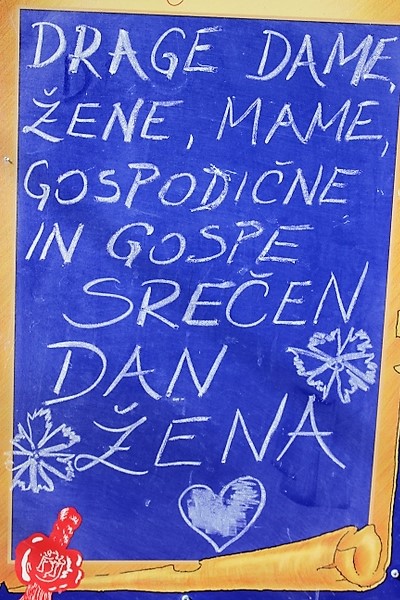 DRAGE DAME,
ŽENE, MAME,
GOSPODIČNE
IN GOSPE
SREČEN
DAN
ŽENA